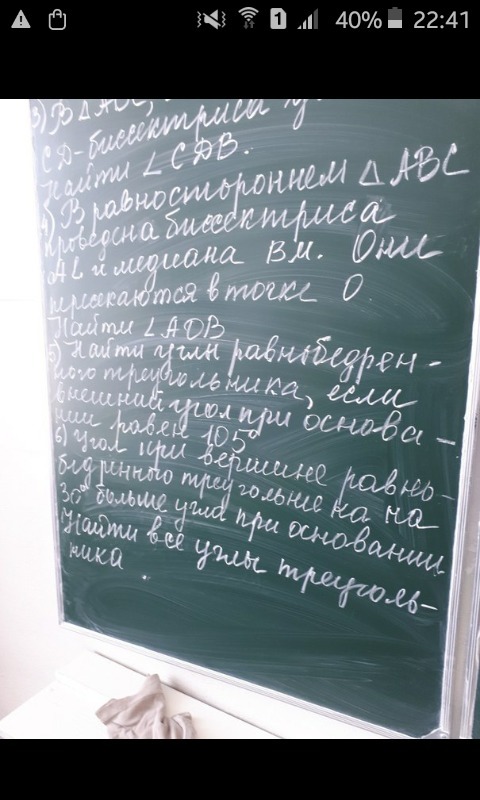 40% 22:41
3) В △
СD-биссектриса
Найти ∠ CDB.
4) В равностороннем △ ABC
проведена биссектриса
AL и медиана BM. Они
пересекаются в точке O
Найти ∠ AOB
5) Найти углы равнобедрен-
ного треугольника, если
внешний угол при основа-
нии равен 105°
6) Угол при вершине равно-
бедренного на
30° больше угла при основании.
Найти все углы треуголь-
ника